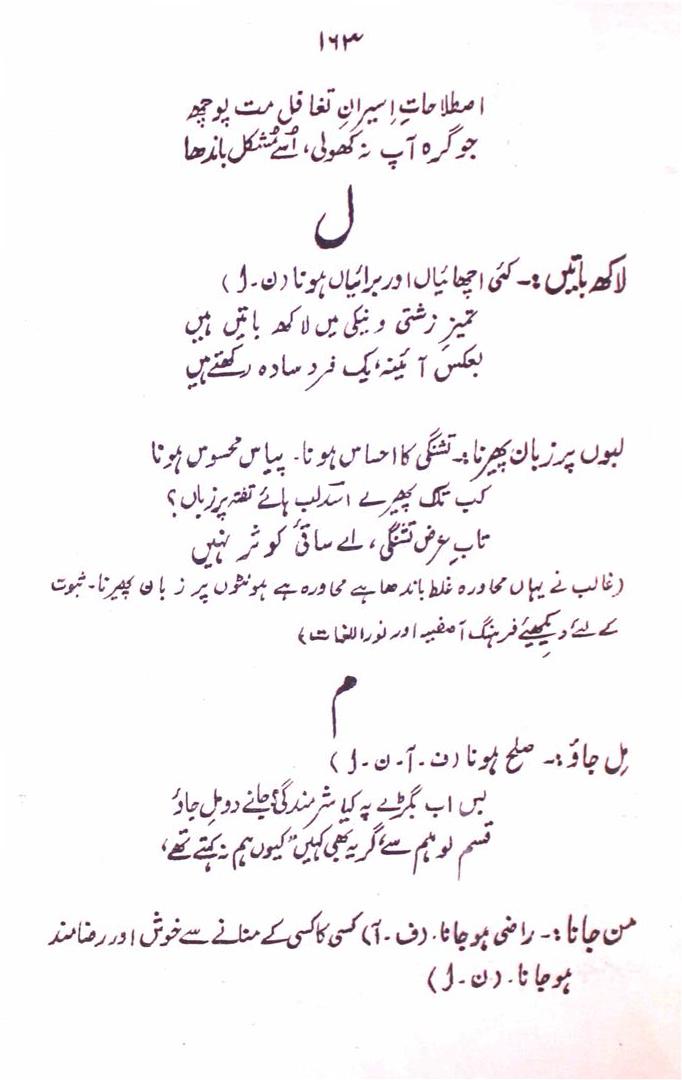 ۱۶۳
اصطلاحاتِ اسیرانِ تغافل مت پوچھ
جو گرہ آپ نہ کھولی، اُسے مُشکل باندھا
ل
لاکھ باتیں :۔ کئی اچھائیاں اور برائیاں ہونا (ن۔ل)
تمیزِ زشتی و نیکی میں لاکھ باتیں ہیں
بعکس آئینہ، یک فرد سادہ رکھتے ہیں
لبوں پر زبان پھیرنا :۔ تشنگی کا احساس ہونا۔ پیاس محسوس ہونا
کب تک پھیرے اسدؔ لب ہائے تفتہ پر زباں؟
تابِ عرض تشنگی، اے ساقیٔ کوثر نہیں
(غالب نے یہاں محاورہ غلط باندھا ہے محاورہ ہے ہونٹوں پر زبان پھیرنا۔ ثبوت
کے لئے دیکھیئے فرہنگ آصفیہ اور نوراللغات)
م
مِل جاؤ :۔ صلح ہونا (ف۔آ۔ن۔ل)
بس اب بگڑے پہ کیا شرمندگی؟ جانے دو مل جاؤ
قسم لو ہم سے، گر یہ بھی کہیں "کیوں ہم نہ کہتے تھے،
من جانا :۔ راضی ہو جانا۔ (ف۔آ) کسی کا کسی کے منانے سے خوش اور رضامند
ہو جانا۔ (ن۔ل)